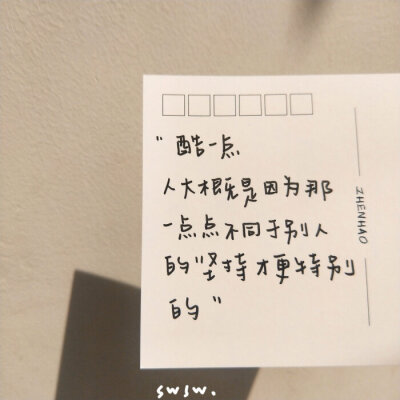 “酷一点
人大概是因为那
一点点不同于别人
的“坚持才更特别
的”
ZHENHAO
swsw.